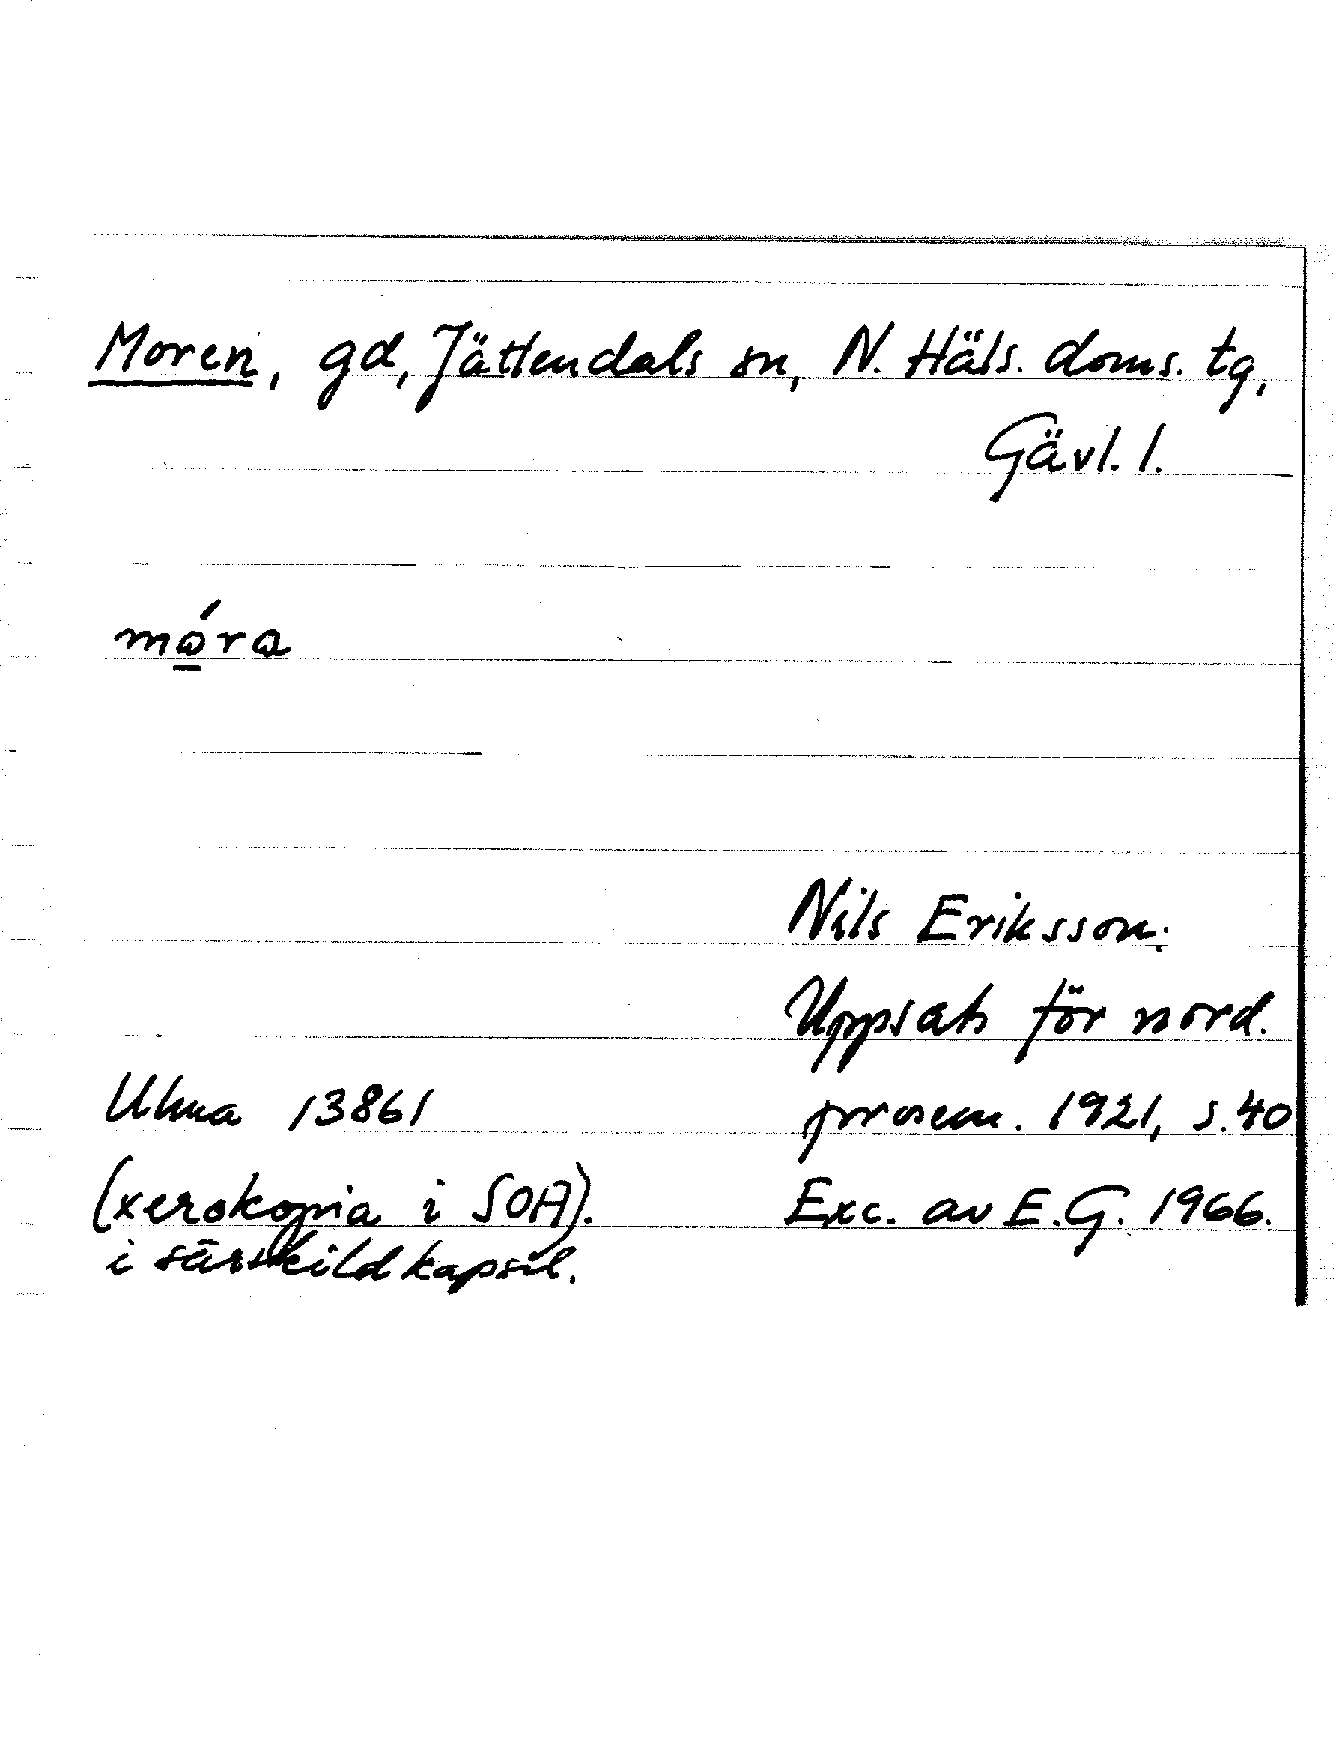 Moren, gd, Jättendals sn, N. Häls. doms. tg,
Gävl. l.
mǫ́ra
Nils Eriksson.
Uppsats för nord.
Ulma 13861 prosem. 1921, s. 40
(xerokopia i SOA). Exc. av E.G. 1966.
i särskild kapsel.